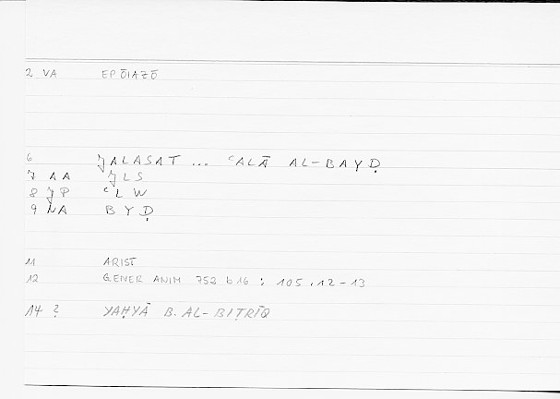 2 VA EPŌIAZŌ
6 JALASAT ... ʿALĀ AL-BAYḌ
7 AA JLS
8 JP ʿLW
9 NA BYḌ
11 ARIST
12 GENER ANIM 752 b16 : 105.12-13
14 ? YAḤYĀ B. AL-BIṬRĪQ